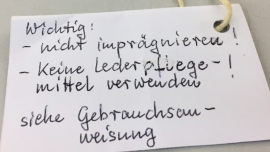 Wichtig:
- nicht imprägnieren!
- Keine Lederpflege-!
mittel verwenden
siehe Gebrauchsan-
weisung